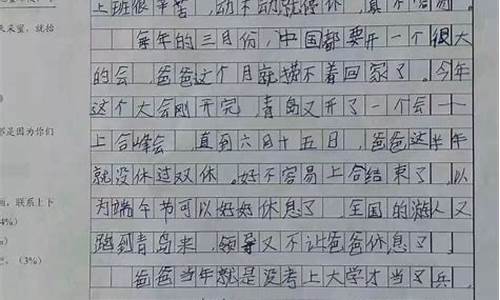 上班很辛苦，动不动就停休，真不容易。
每年的三月份，中国都要开一个很大
的会，爸爸这个月就捞不着回家了。今年
这个大会刚开完，青岛又开了一个会——
上合峰会，直到六月十五日，爸爸这半年
就没休过双休。好不容易上合结束了，以
为端午节可以好好休息了，全国的游人又
跑到青岛来，领导又不让爸爸休息了。
爸爸当年就是没考上大学才当了兵，
天来望，就抬
都是因为你们
，联系上下
4%)
(3%)